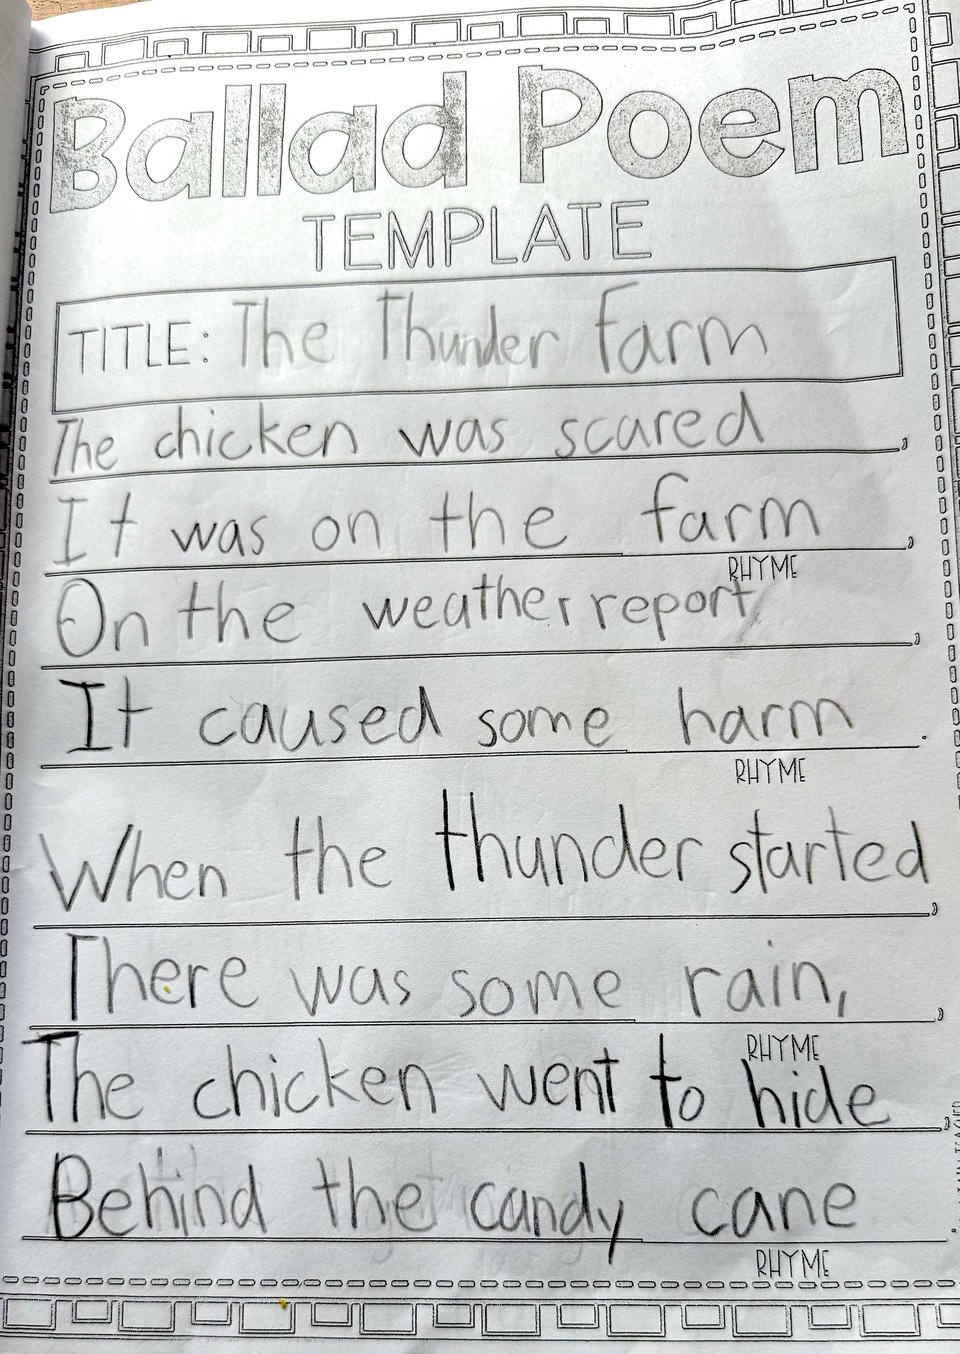 Ballad Poem
TEMPLATE
TITLE: The Thunder Farm
The chicken was scared,
It was on the farm,
RHYME
On the weather report,,
It caused some harm.
RHYME
When the thunder started,,
There was some rain,,
RHYME
The chicken went to hide,
Behind the candy cane.
RHYME